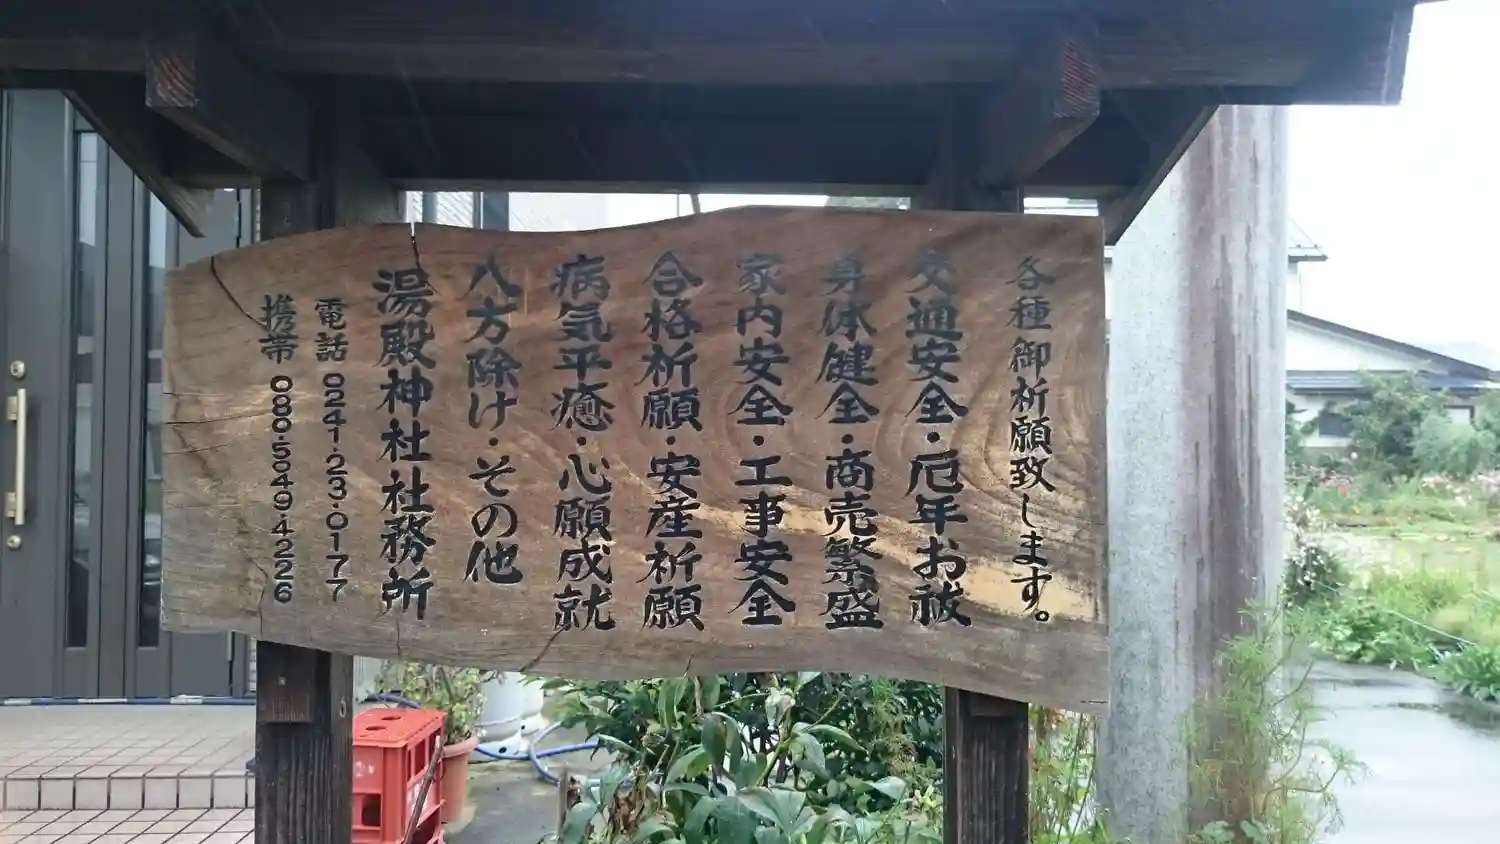 各種御祈願致します。
交通安全・厄年お祓
身体健全・商売繁盛
家内安全・工事安全
合格祈願・安産祈願
病気平癒・心願成就
八方除け・その他
湯殿神社社務所
電話 0241・23・0177
携帯 080・5049・4226